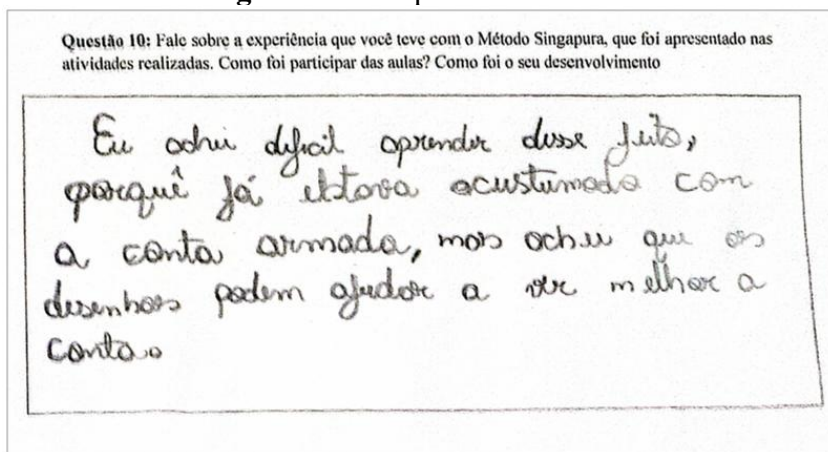 Questão 10: Fale sobre a experiência que você teve com o Método Singapura, que foi apresentado nas
atividades realizadas. Como foi participar das aulas? Como foi o seu desenvolvimento
Eu achei dificil aprender desse jeito,
porquê já estava acustumada com
a conta armada, mas achei que os
desenhos podem ajudar a ver melhor a
conta.